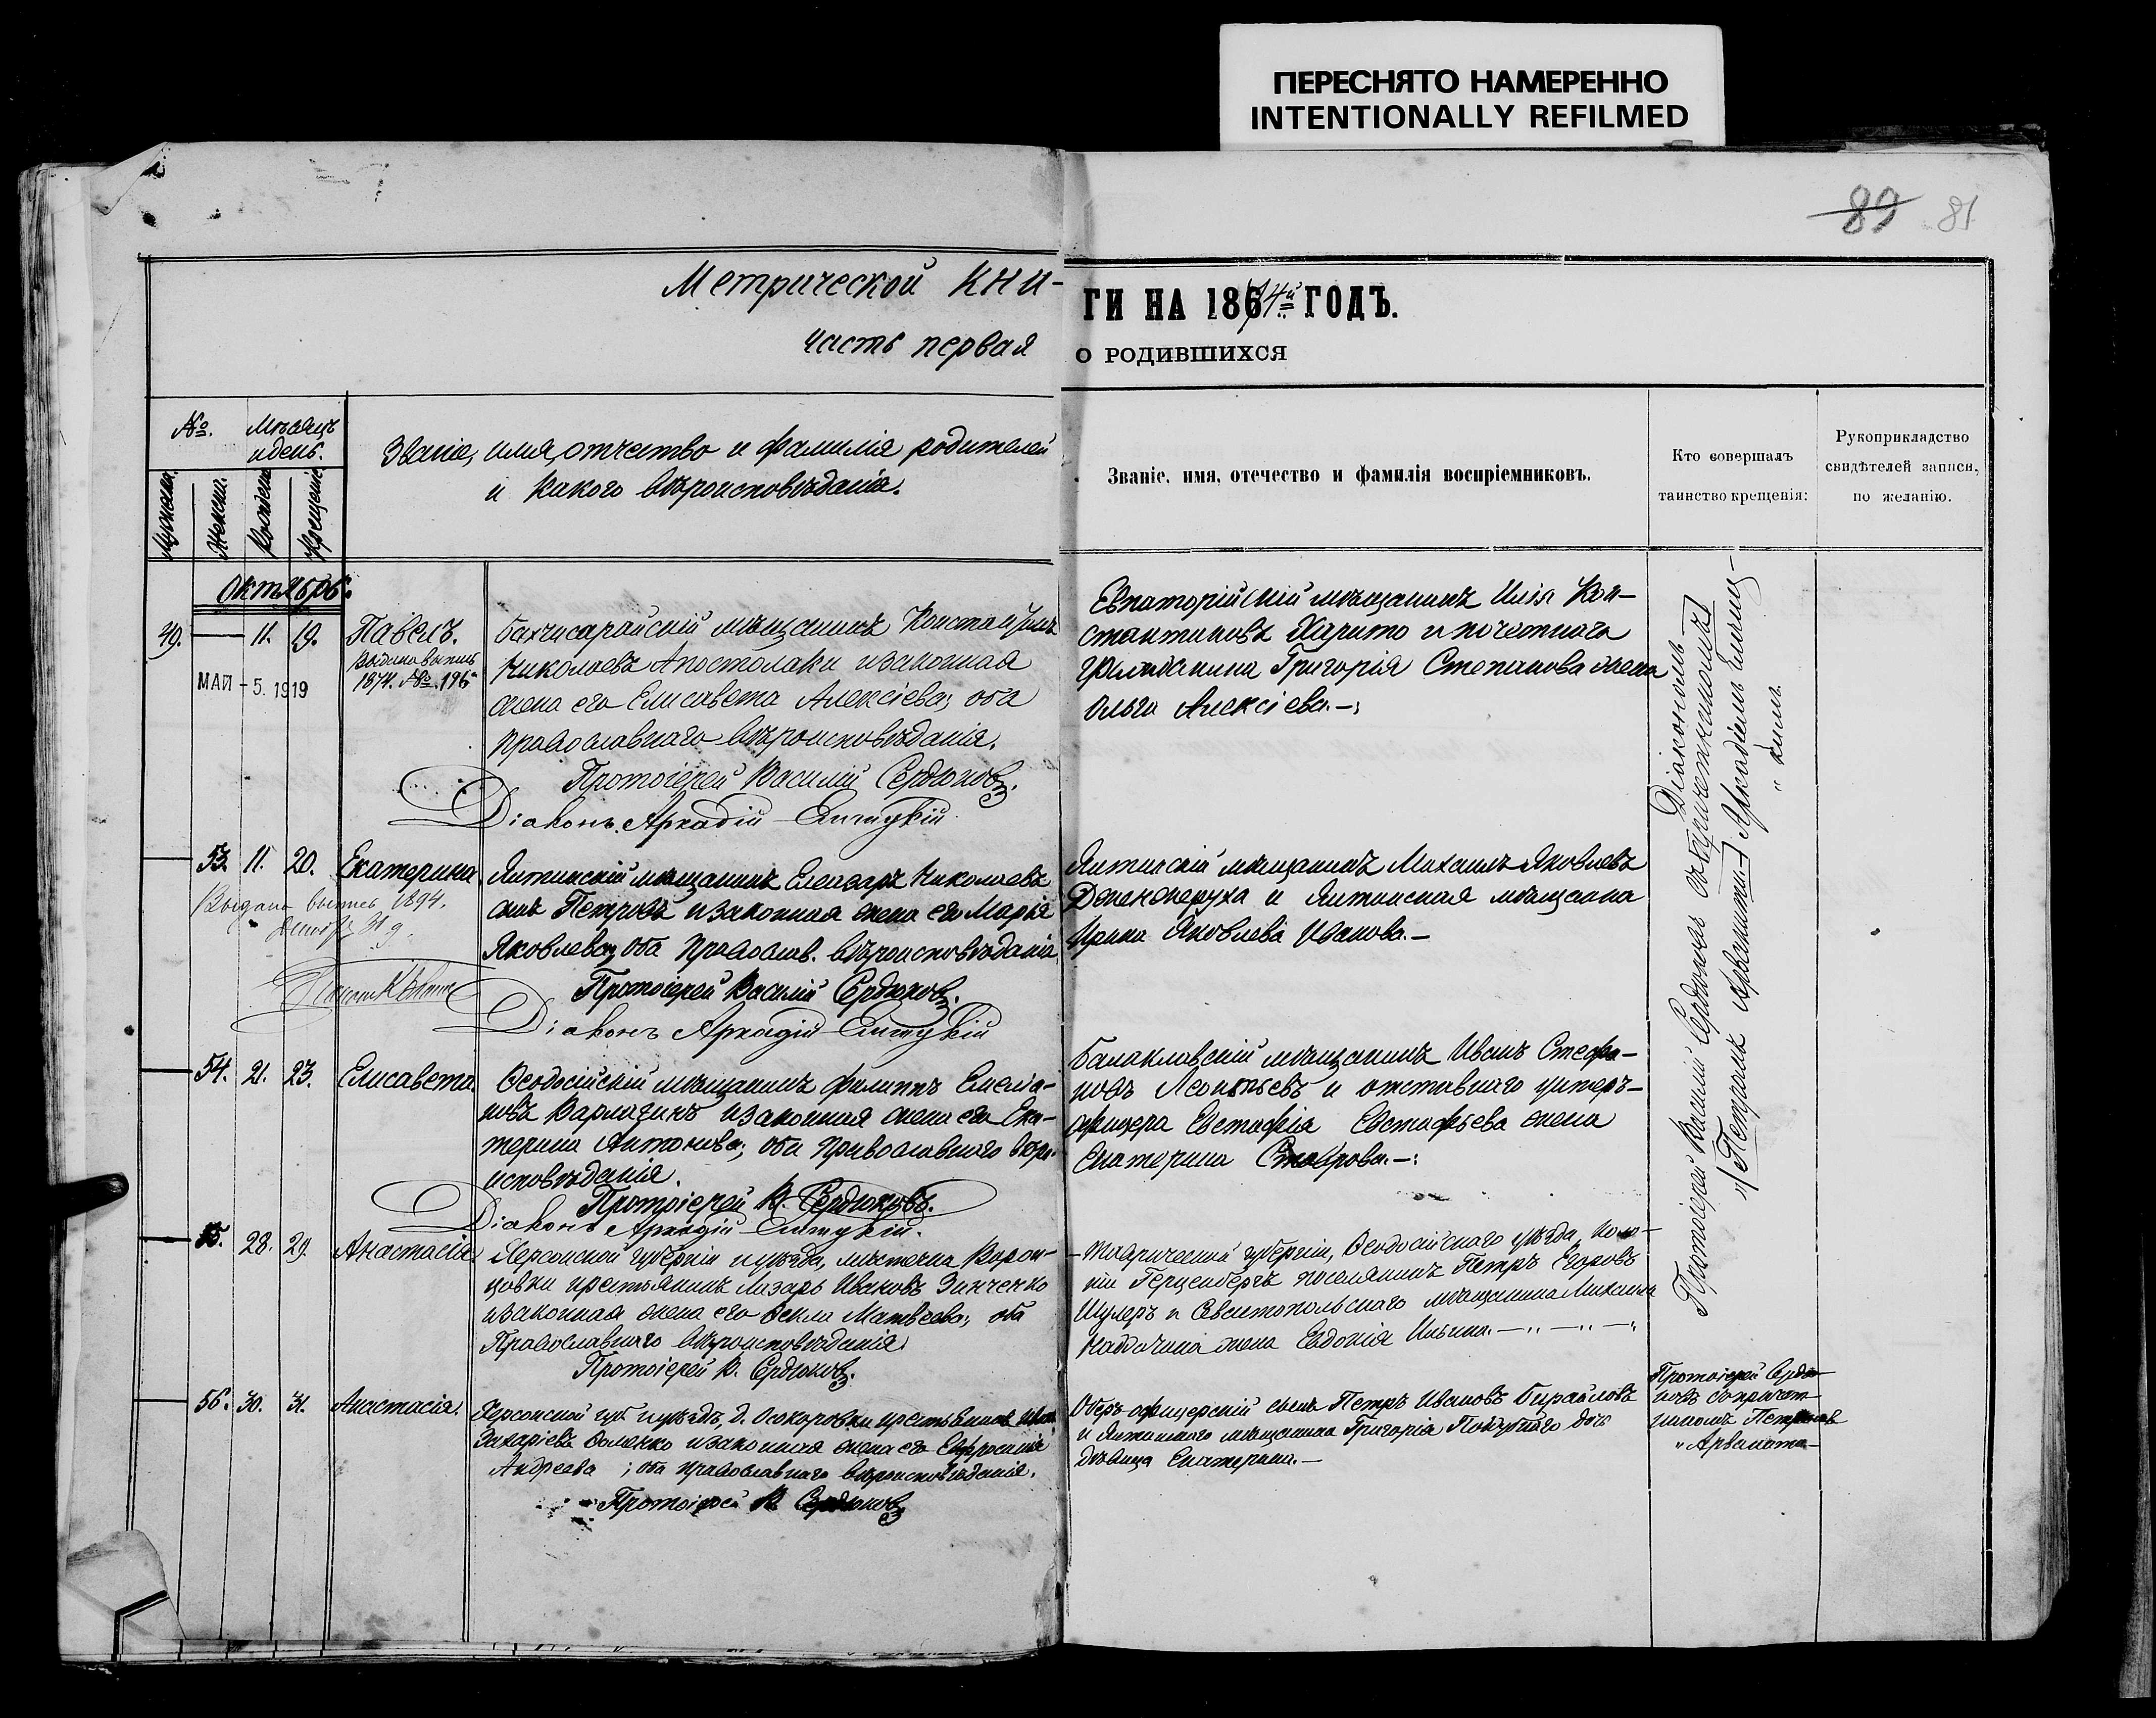 ПЕРЕСНЯТО НАМЕРЕННО
INTENTIONALLY REFILMED
89 81
Метрической КНИ-
ГИ НА 1874й ГОДЪ.
часть первая
О РОДИВШИХСЯ
№. Мѣсяцъ и день.
Мужеска. Женска. Рожденія Крещенія
Званіе, имя, отчество и фамилія родителей
и какого вѣроисповѣданія.
Званіе, имя, отечество и фамилія воспріемниковъ.
Кто совершалъ
таинство крещенія:
Рукоприкладство
свидѣтелей записи,
по желанію.
Октябрь.
49. 11. 19. Павелъ.
Выдана выпись
1874. №. 196
МАЙ - 5. 1919
Бахчисарайскій мѣщанинъ Константинъ
Николаевъ Апостолаки и законная
жена его Елисавета Алексіева; оба
православнаго вѣроисповѣданія.
Протоіерей Василій Сердюковъ.
Діаконъ Аркадій
Евпаторійскій мѣщанинъ Илія Кон-
стантиновъ Харито и почетнаго
гражданина Григорія Степанова жена
Ольга Алексіева.-:
53. 11. 20. Екатерина
Выдана выпись 1894.
Ялтинскій мѣщанинъ Елеазаръ Николаевъ
сынъ Петровъ и законная жена его Марія
Яковлева; оба православ. вѣроисповѣданія
Протоіерей Василій Сердюковъ.
Діаконъ Аркадій
Ялтинскій мѣщанинъ Михаилъ Яковлевъ
Дженджеруха и Ялтинская мѣщанка
Ирина Яковлева Иванова.-
54. 21. 23. Елисавета
Ѳеодосійскій мѣщанинъ Филиппъ Емелія-
новъ Варлагинъ и законная жена его Ека-
терина Антонова; оба православнаго вѣро-
исповѣданія.
Протоіерей В. Сердюковъ.
Діаконъ Аркадій
Балаклавскій мѣщанинъ Иванъ Стефа-
новъ Леонтьевъ и отставнаго унтеръ-
офицера Евстафія Евстафьева жена
Екатерина Ставрова.-:
55. 28. 29. Анастасія
Херсонской губерніи и уѣзда, мѣстечка Ворон-
цовки крестьянинъ Лазарь Ивановъ Зинченко
и законная жена его Ѳекла Матвѣева; оба
Православнаго вѣроисповѣданія.
Протоіерей В. Сердюковъ.
Таврической губерніи, Ѳеодосійскаго уѣзда, коло-
ніи Герценбергъ поселянинъ Петръ Егоровъ
Шулеръ и Севастопольскаго мѣщанина Михаила
жена Евдокія Ильина.-
56. 30. 31. Анастасія.
Херсонской губ. и уѣзда, д. Осокоровки крестьянинъ
Захаріевъ и законная жена его Евфросинія
Андреева; оба православнаго вѣроисповѣданія.
Протоіерей В. Сердюковъ
Оберъ-офицерскій сынъ Петръ Ивановъ
и Ялтинскаго мѣщанина Григорія дочь
дѣвица Екатерина.-
Протоіерей Василій Сердюковъ съ причетникомъ
Петромъ
Діакономъ
Аркадіемъ
Протоіерей Сердю-
ковъ съ причет-
никомъ Петромъ